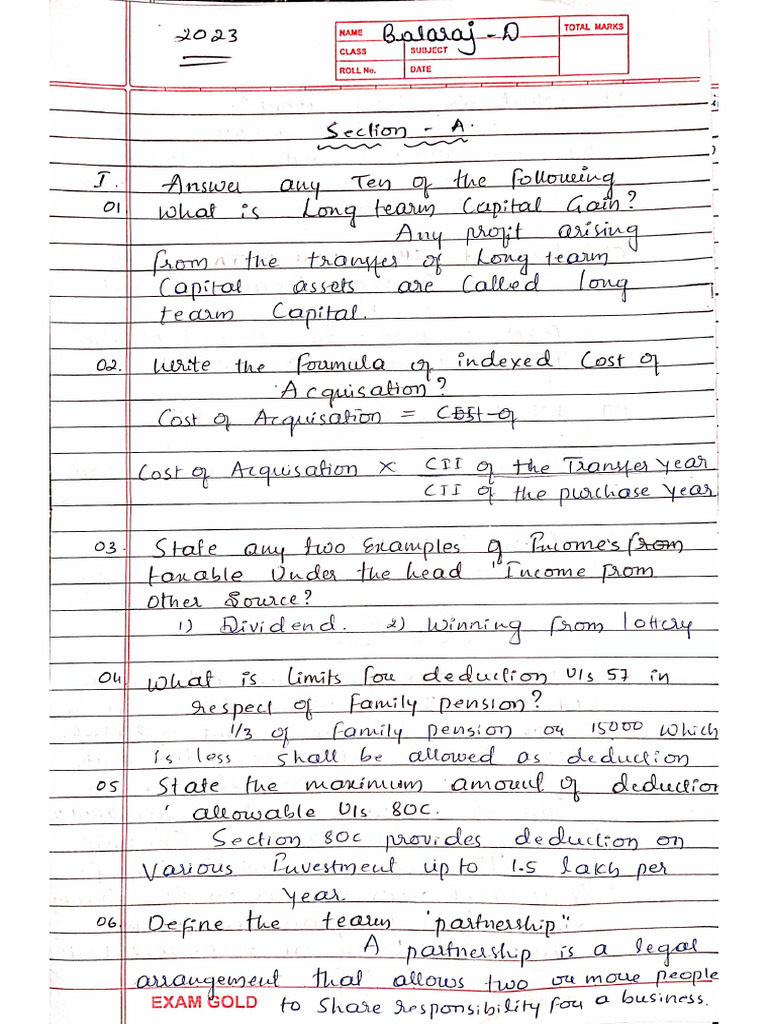 2023
NAME Balaraj-D TOTAL MARKS
CLASS SUBJECT
ROLL No. DATE
Section - A.
I. Answer any Ten of the following
01 What is Long tearm Capital Gain?
Any profit arising
from the transfer of Long tearm
Capital assets are Called long
tearm Capital.
02. Write the formula of indexed Cost of
Acquisation?
Cost of Acquisation = Cost of
Cost of Acquisation × CII of the Transfer year
CII of the purchase year
03. State any two Examples of Income's from
taxable Under the head "Income from
Other Source?
1) Dividend. 2) Winning from lottery
04 What is limits for deduction U/s 57 in
respect of Family pension?
1/3 of family pension or 15000 which
is less shall be allowed as deduction
05 State the maximum amount of deduction
allowable U/s 80C.
Section 80C provides deduction on
Various Investment up to 1.5 lakh per
year.
06. Define the tearm "partnership":
A partnership is a legal
arrangement that allows two or more people
EXAM GOLD to share responsibility for a business.